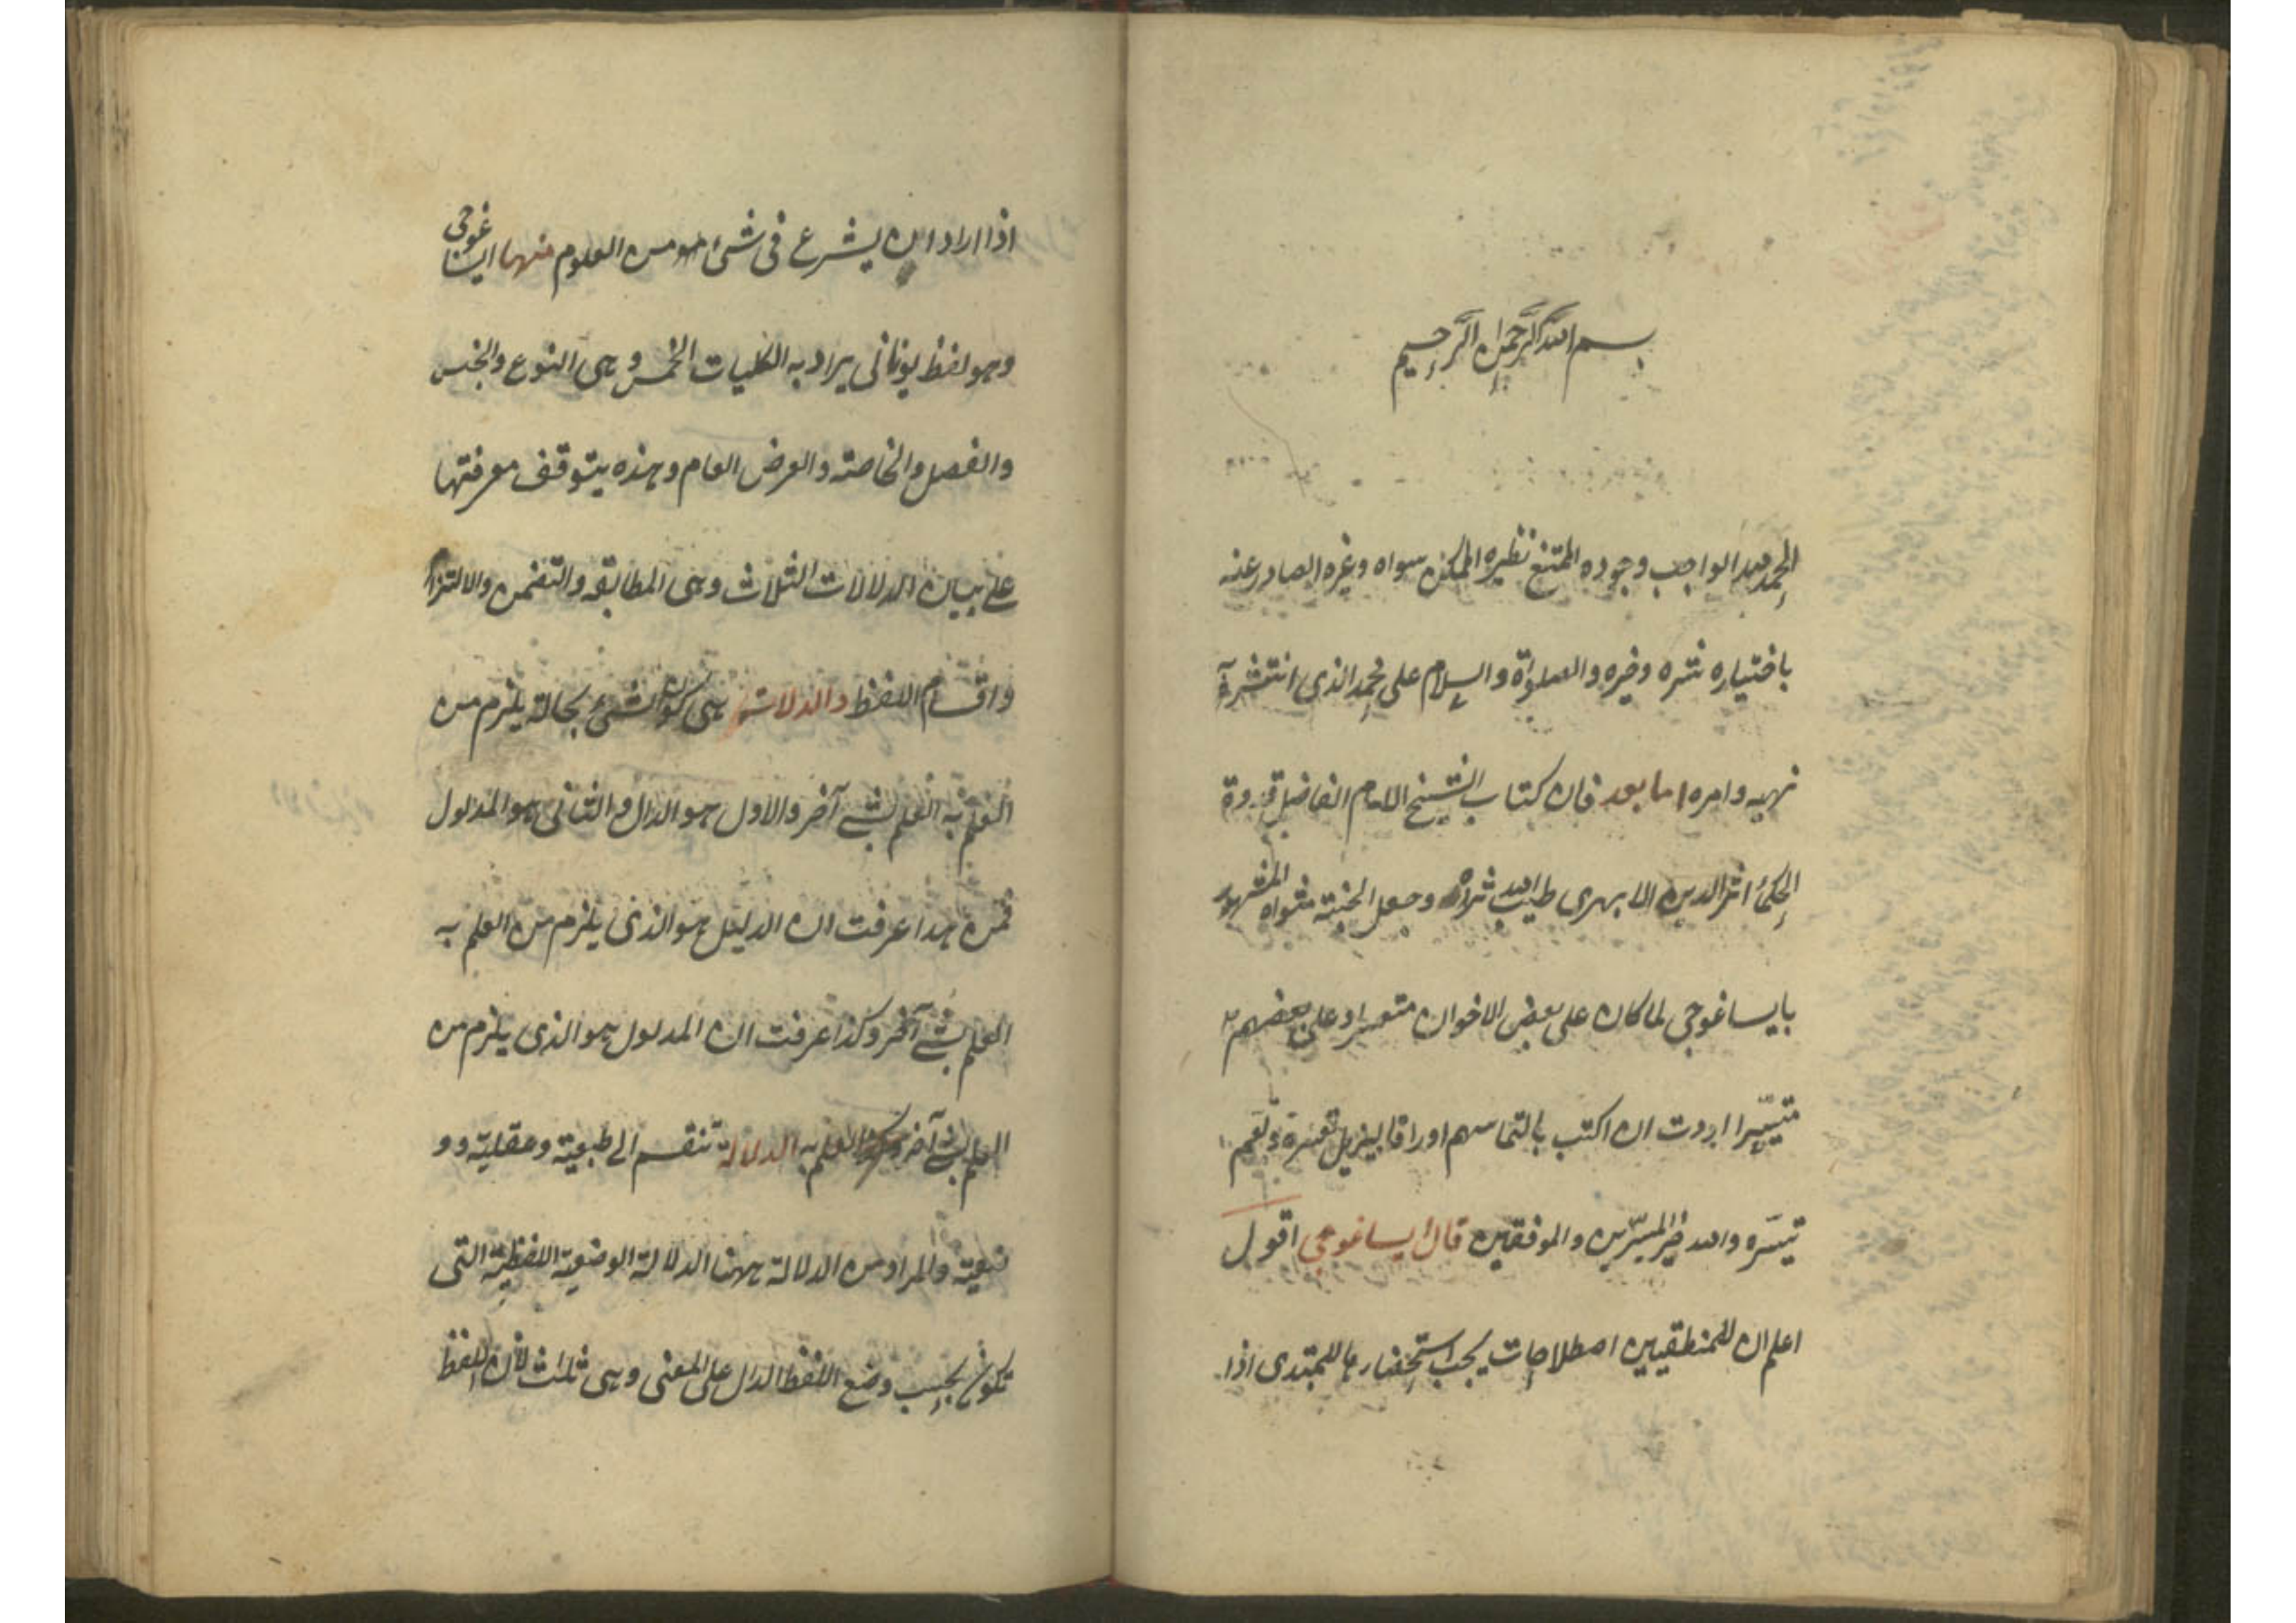 بسم الله الرحمن الرحيم
الحمد لله الواجب وجوده الممتنع نظيره الممكن سواه وغيره الصادر عنه
باختياره شره وخيره والصلوة والسلام على محمد الذى انتشر
نهيه وامره اما بعد فان كتاب الشيخ الامام الفاضل قدوة
الحكماء اثير الدين الابهرى طيب الله ثراه وجعل الجنة مثواه المشهور
بايساغوجى لما كان على بعض الاخوان متعسرا وعلى بعضهم
متيسّرا اردت ان اكتب بالتماسهم اوراقا ليزيل تعسره وتعمم
تيسّره والله خير الميسّرين والموفقين قال ايساغوجى اقول
اعلم ان للمنطقيين اصطلاحات يجب استحضارها للمبتدى اذا
اذا اراد ان يشرع فى شئ من العلوم منها ايساغوجى
وهو لفظ يونانى يراد به الكليات الخمس وهى النوع والجنس
والفصل والخاصة والعرض العام وهذه يتوقف معرفتها
على بيان الدلالات الثلاث وهى المطابقة والتضمن والالتزام
واقسام اللفظ والدلالة هى كون الشئ بحالة يلزم من
العلم به العلم بشئ آخر والاول هو الدال والثانى هو المدلول
فمن هذا عرفت ان الدليل هو الذى يلزم من العلم به
العلم بشئ آخر وكذا عرفت ان المدلول هو الذى يلزم من
العلم بشئ آخر العلم به الدلالة تنقسم الى طبيعية وعقلية وو
ضعية والمراد من الدلالة ههنا الدلالة الوضعية اللفظية التى
تكون بحسب وضع اللفظ الدال على المعنى وهى ثلاث لأن اللفظ